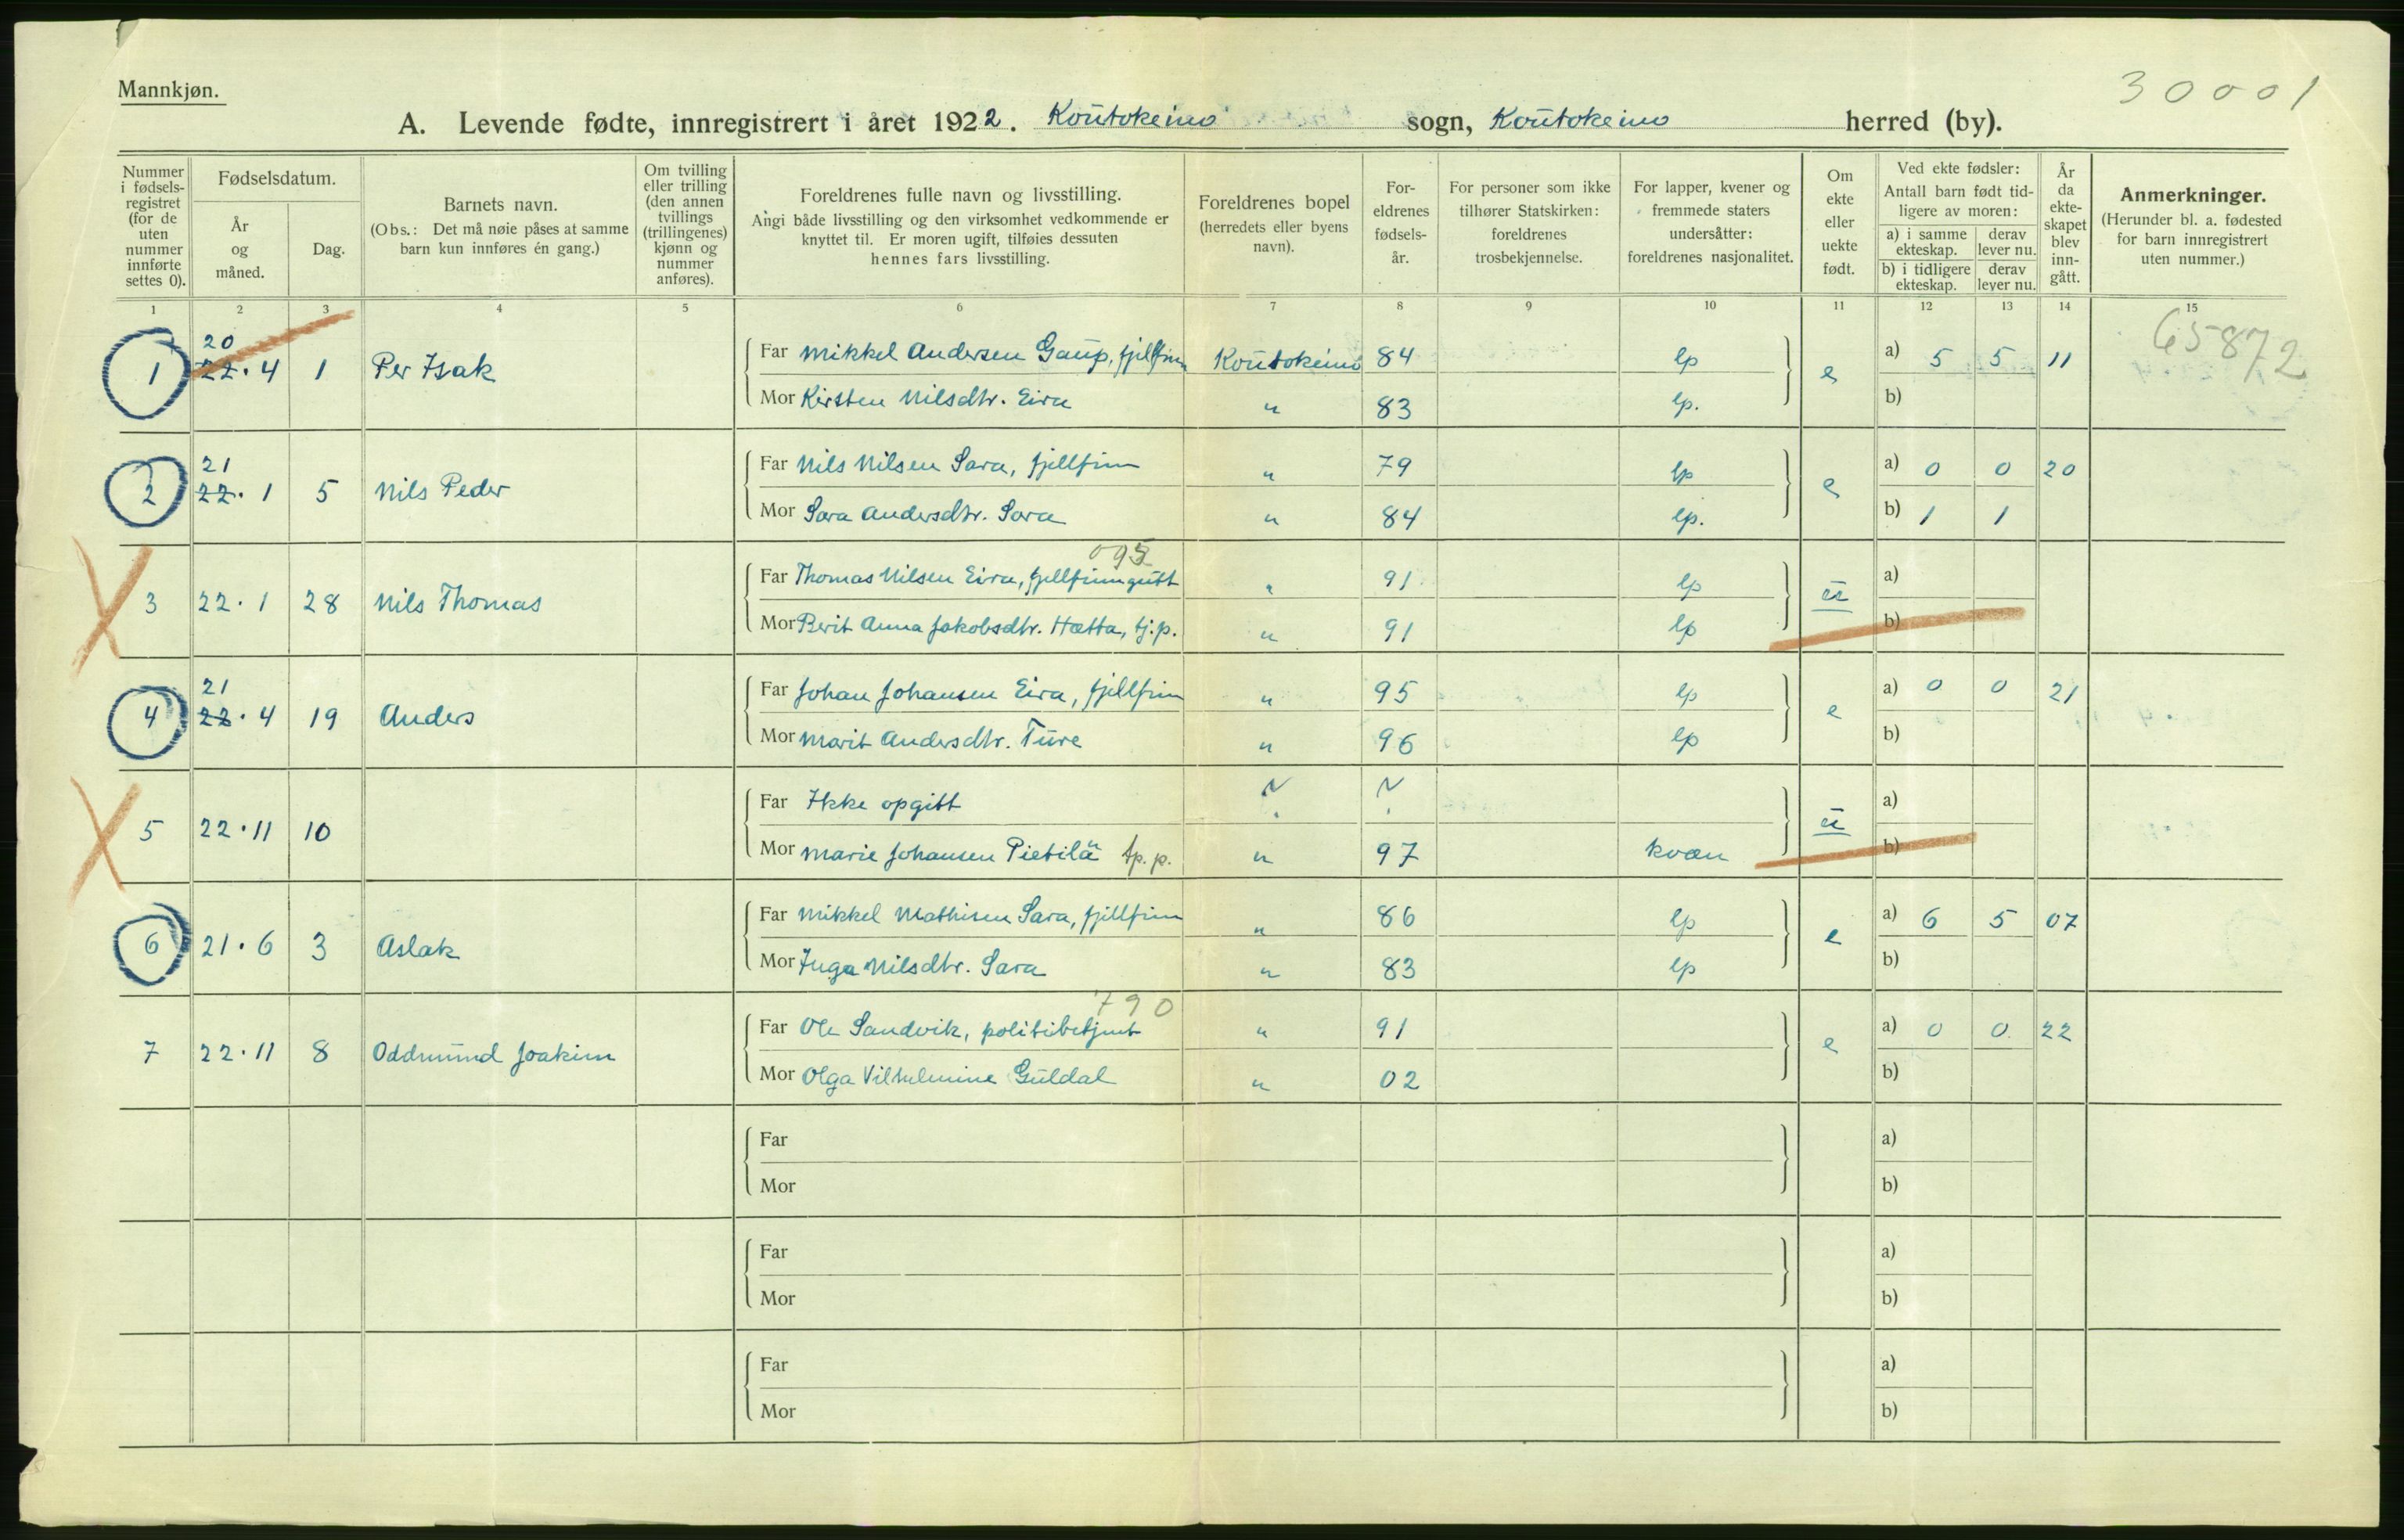 Mannkjøn.
30001
A. Levende fødte, innregistrert i året 1922. Koutokeino sogn, Koutokeino herred (by).
Nummer i fødsels-registret (for de uten nummer innførte settes 0).
Fødselsdatum.
År og måned.
Dag.
Barnets navn.
(Obs.: Det må nøie påses at samme barn kun innføres én gang.)
Om tvilling eller trilling (den annen tvillings (trillingenes) kjønn og nummer anføres).
Foreldrenes fulle navn og livsstilling.
Angi både livsstilling og den virksomhet vedkommende er knyttet til. Er moren ugift, tilføies dessuten hennes fars livsstilling.
Foreldrenes bopel (herredets eller byens navn).
For-eldrenes fødsels-år.
For personer som ikke tilhører Statskirken: foreldrenes trosbekjennelse.
For lapper, kvener og fremmede staters undersåtter: foreldrenes nasjonalitet.
Om ekte eller uekte født.
Ved ekte fødsler:
Antall barn født tid-ligere av moren:
a) i samme ekteskap. derav lever nu.
b) i tidligere ekteskap. derav lever nu.
År da ekte-skapet blev inn-gått.
Anmerkninger.
(Herunder bl. a. fødested for barn innregistrert uten nummer.)
1 2 3 4 5 6 7 8 9 10 11 12 13 14 15
65872
20
1 22.4 1 Per Isak Far Mikkel Andersen Gaup, fjellfinn Koutokeino 84 lp e a) 5 5 11
Mor Kirsten Nilsdtr. Eira " 83 lp. b)
21
2 22.1 5 Nils Peder Far Nils Nilsen Sara, fjellfinn " 79 lp e a) 0 0 20
Mor Sara Andersdtr. Sara " 84 lp. b) 1 1
3 22.1 28 Nils Thomas Far Thomas Nilsen Eira, fjellfinngutt " 91 lp u a)
Mor Berit Anna Jakobsdtr. Hætta, tj.p. " 91 lp b)
21
4 22.4 19 Anders Far Johan Johansen Eira, fjellfinn " 95 lp e a) 0 0 21
Mor Marit Andersdtr. Ture " 96 lp b)
5 22.11 10 Far Ikke opgitt ? ? u a)
Mor Marie Johansen Pietilä tp. p. " 97 kvæn b)
6 21.6 3 Aslak Far Mikkel Mathisen Sara, fjellfinn " 86 lp e a) 6 5 07
Mor Inga Nilsdtr. Sara " 83 lp b)
790
7 22.11 8 Oddmund Joakim Far Ole Sandvik, politibetjent " 91 e a) 0 0 22
Mor Olga Vilhelmine Guldal " 02 b)
Far a)
Mor b)
Far a)
Mor b)
Far a)
Mor b)